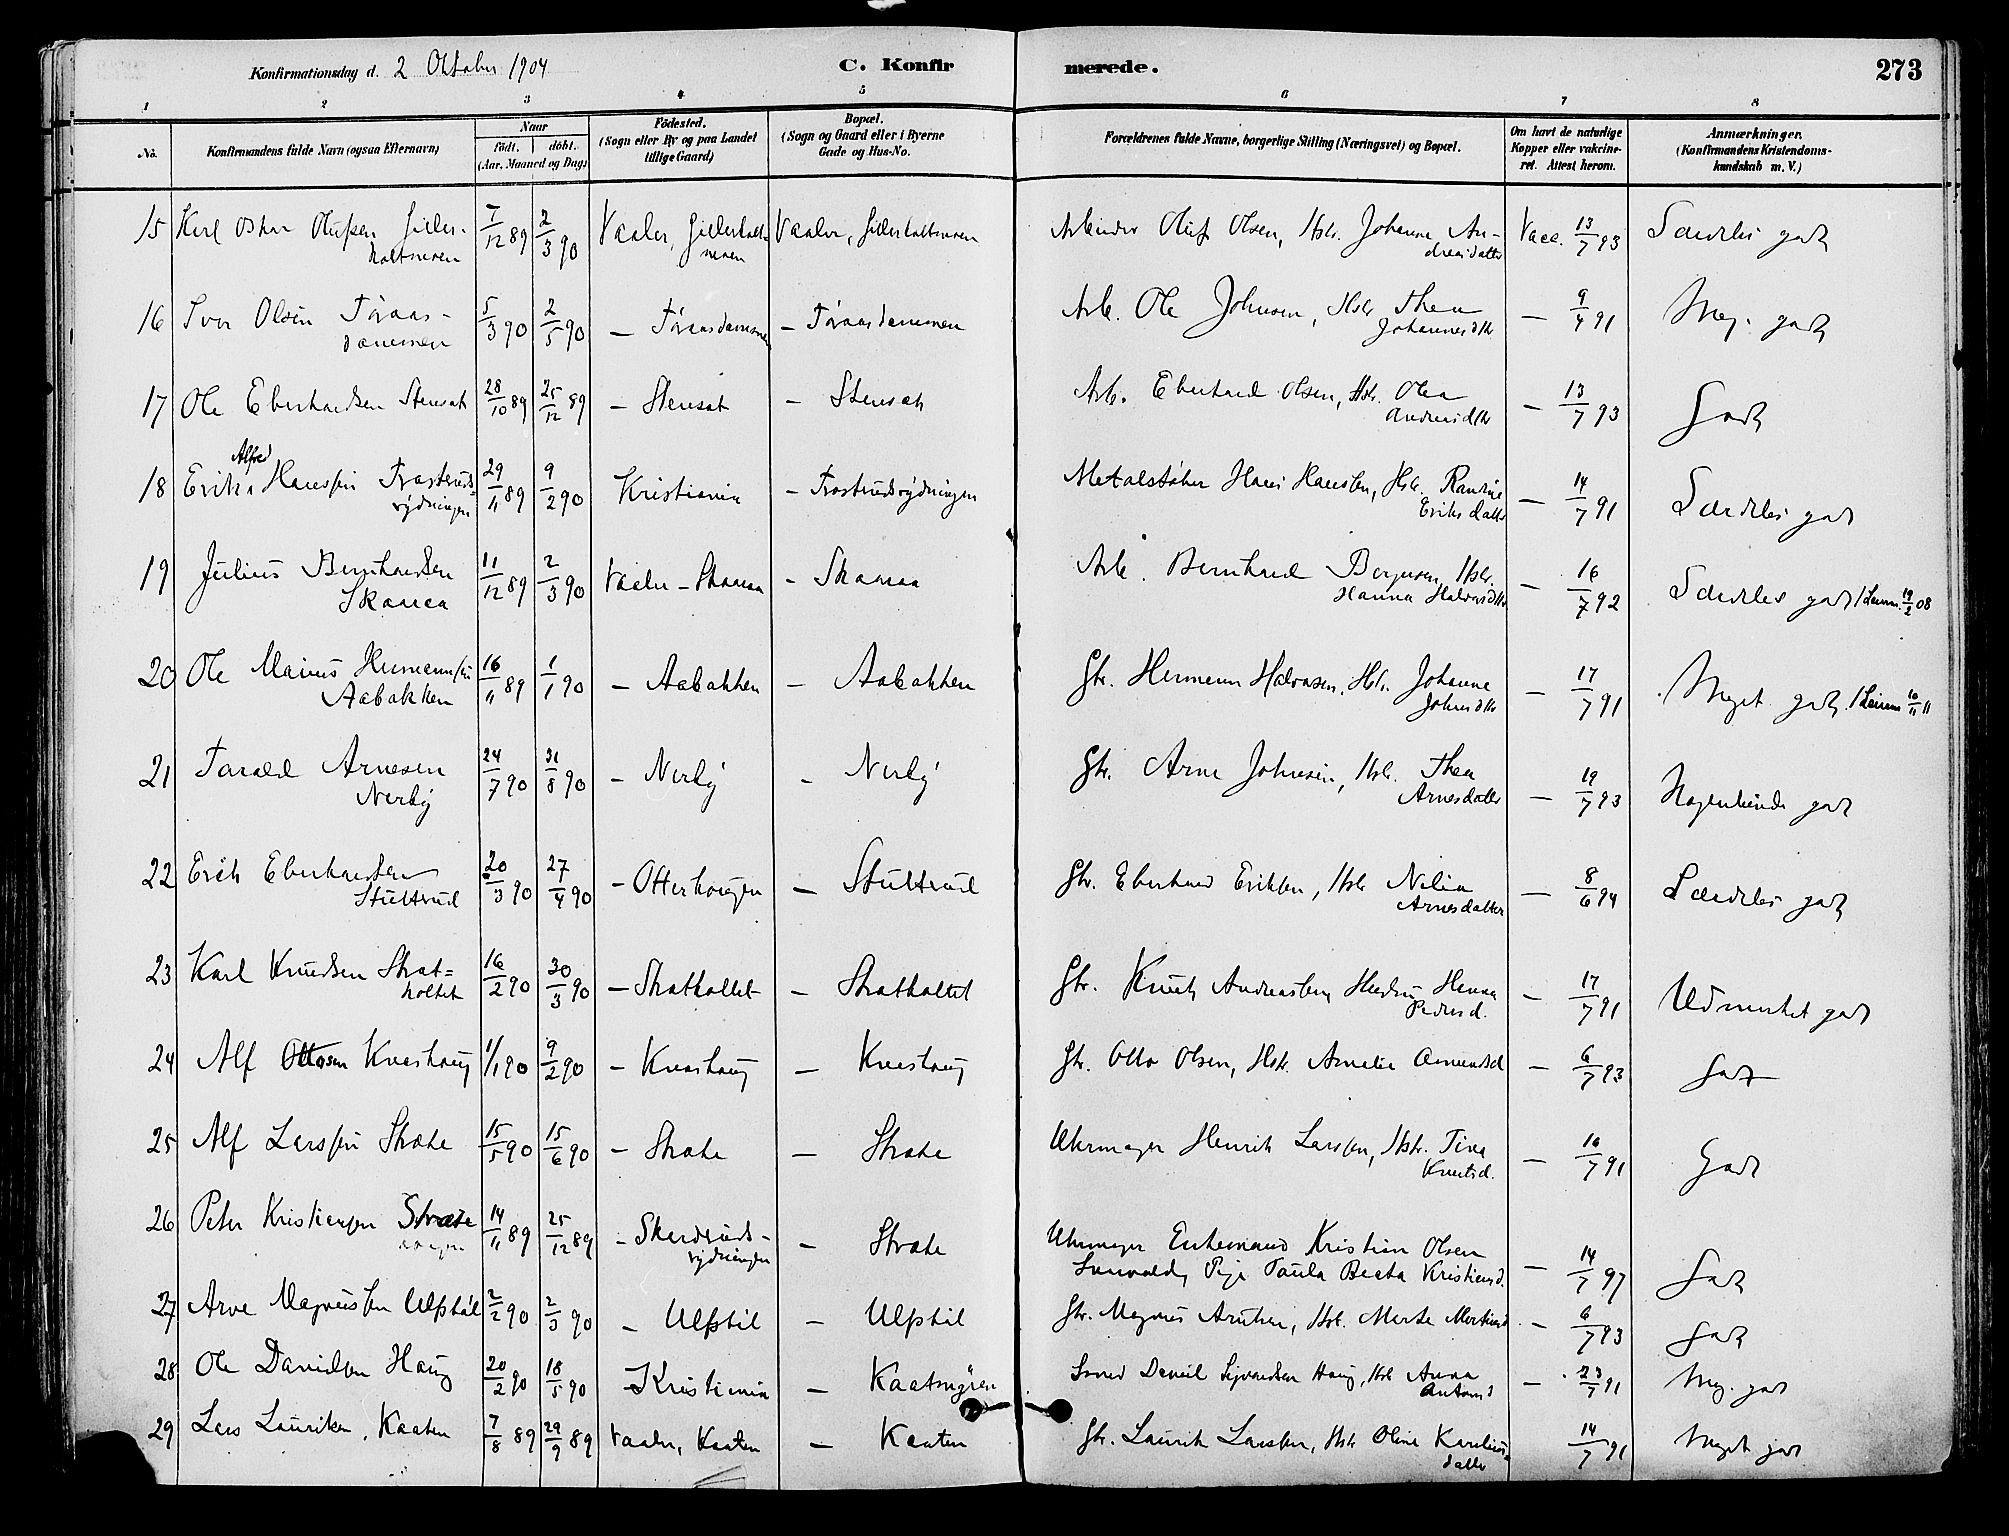 Konfirmationsdag d. 2 Oktober 1904
C. Konfir
merede.
273
1 2 3 4 5 6 7 8
No. Konfirmandens fulde Navn (ogsaa Efternavn) Naar Födt. döbt. (Aar, Maaned og Dag) Födested. (Sogn eller By og paa Landet tillige Gaard) Bopæl. (Sogn og Gaard eller i Byerne Gade og Hus-No. Forældrenes fulde Navne, borgerlige Stilling (Næringsvei) og Bopæl. Om havt de naturlige Kopper eller vakcineret. Attest herom. Anmærkninger. (Konfirmandens Kristendomskundskab m. V.)
15 Karl Oskar Olufsen 7/12 89 2/3 90 Vaaler, Vaaler, Arbeider Oluf Olsen, Hstr. Johanne An-
dreasdatter Vacc. 13/7 93 Særdeles godt
16 Ivar Olsen Töraas-
danemoen 5/3 90 2/5 90 – Töraasdanemoen – Töraasdanemoen Arb. Ole Johnsen, Hstr. Thea
Johannesdtr – 9/4 91 Meg. godt
17 Ole Eberhardsen Stensat 28/10 89 25/12 89 – Stensat – Stensat Arb. Eberhard Olsen, Hstr. Olea
Andreasdtr – 13/7 93 Godt
Alfred
18 Erik Hanssen Trostruds-
rydningen 29/11 89 9/2 90 Kristiania – Trostrudsrydningen Metalstøber Hans Hanssen, Hstr. Randine
Eriksdatter – 14/7 91 Særdeles godt
19 Julius Bernhardsen
Skaaraa 11/12 89 2/3 90 Vaaler – Skaaraa – Skaaraa Arb. Bernhard Borgersen, Hstr.
Hanna Halvorsdtr – 16/7 92 Særdeles godt /Levum. 19/2 08
20 Ole Marius Hermannsen
Aabakken 16/11 89 1/1 90 – Aabakken – Aabakken Gbr. Hermann Halvorsen, Hstr. Johanne
Johnsdtr – 17/7 91 Meget godt
21 Torald Arnesen
Nerby 24/7 90 31/8 90 – Nerby – Nerby Gbr. Arne Johnsen, Hstr. Thea
Arnesdatter – 19/7 93 Nogenlunde godt
22 Erik Eberhardsen
Stuttrud 20/3 90 27/4 90 – Otterhougen – Stuttrud Gbr. Eberhard Eriksen, Hstr Nilia
Arnesdatter – 8/6 94 Særdeles godt
23 Karl Knudsen Skat-
holtet 16/2 90 30/3 90 – Skatholtet – Skatholtet Gbr. Knut Andreassen, Hustru Hanna
Pedersd. – 17/7 91 Udmerket godt
24 Alf Ottosen Kveshaug 1/1 90 9/2 90 – Kveshaug – Kveshaug Gbr. Otto Olsen, Hstr. Amelie Amundsd – 6/7 93 Godt
25 Alf Larssen Stræte 15/5 90 15/6 90 – Stræte – Stræte Uhrmager Henrik Larssen, Hstr. Tina
Knutsd. – 16/7 91 Godt
26 Peter Kristiansen Stræte 14/11 89 25/12 89 – Skardruds-
rydningen – Stræte Uhrmager Enkemand Kristian Olsen
Pige Paula Beata Kristiansd. – 14/7 97 Godt
27 Arve Magnussen Ulfstöl 2/2 90 2/3 90 – Ulfstöl – Ulfstöl Gbr. Magnus Hstr. Marte – 6/7 93 Godt
28 Ole Davidsen Haug 20/2 90 18/5 90 – Kristiania – Kaatmyren Smed Daniel Sigvardsen Haug, Hstr Anna
Antonsd – 23/7 91 Meg. godt
29 Lars Lauritsen, Kaaten 7/8 89 29/9 89 Vaaler, Kaaten – Kaaten Gbr. Laurits Larssen, Hstr Oline Karelius-
datter 14/7 91 Meget godt